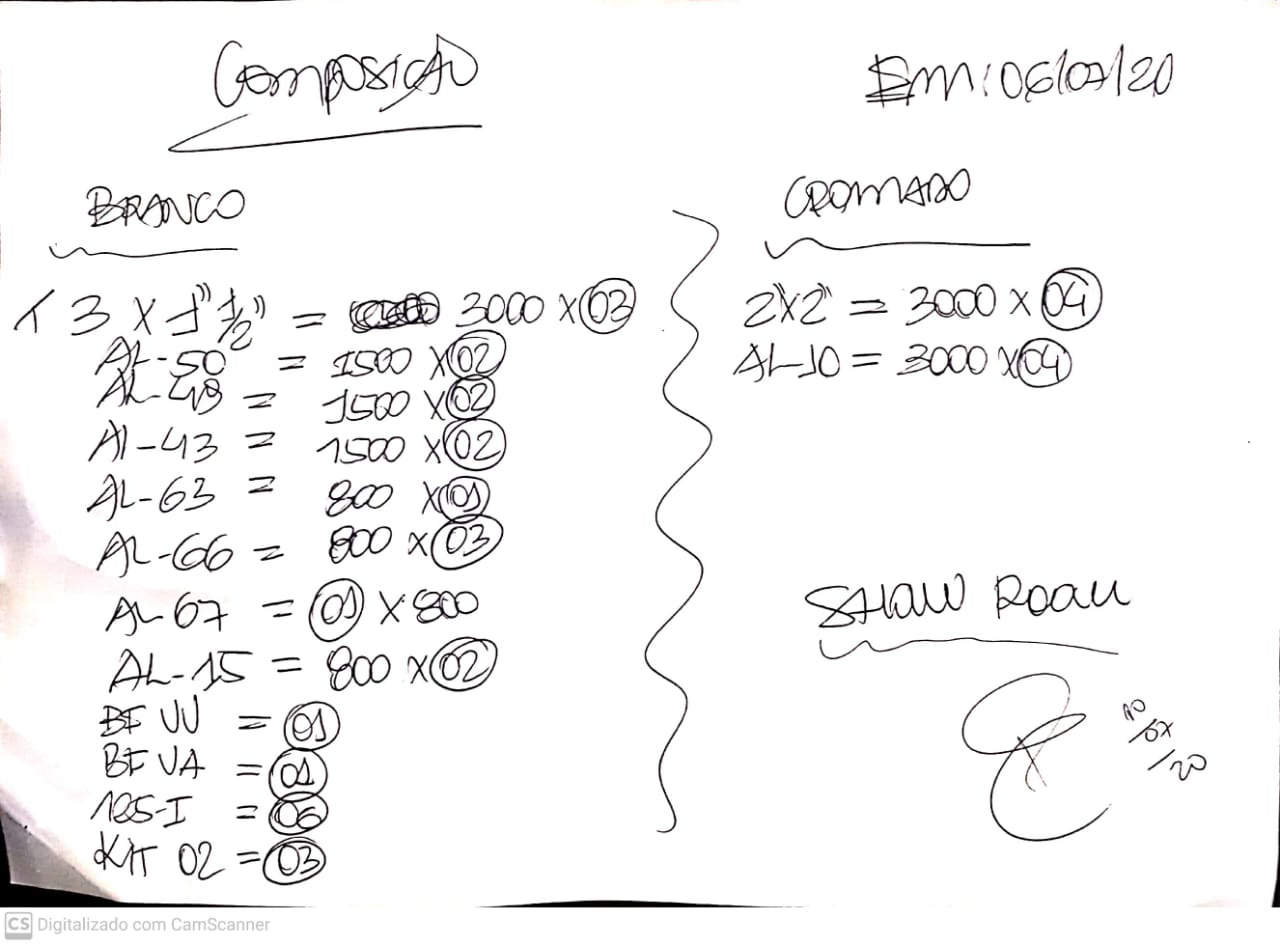 Composição
Em: 06/07/20
BRANCO
3 x 1" 1/2" = 3000 x 03
AL-50 = 1500 x 02
AL-48 = 1500 x 02
Al-43 = 1500 x 02
AL-63 = 800 x 01
AL-66 = 800 x 03
AL-67 = 01 x 800
AL-15 = 800 x 02
BF VV = 01
BF VA = 01
185-I = 06
KIT 02 = 03
CROMADO
2"x2" = 3000 x 04
AL-10 = 3000 x 04
SHOW ROOM
10/07/20
CS Digitalizado com CamScanner